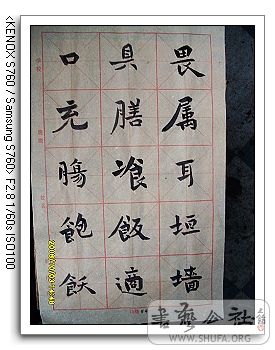 畏属耳垣墙
具膳飡飯適
口充腸飽飫
<KENOX S760 / Samsung S760> F2.8 1/60s ISO100
書藝公社
WWW.SHUFA.ORG